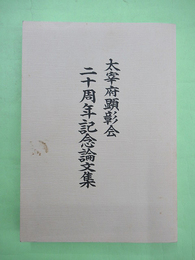 太宰府顕彰会
二十周年記念論文集